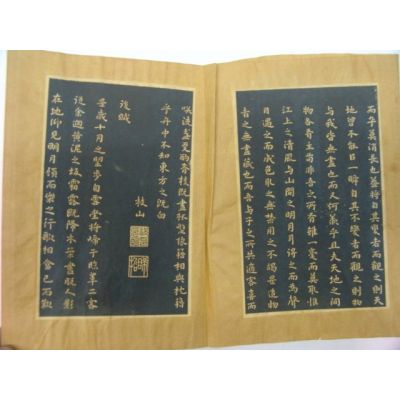 而卒莫消長也盖將自其變者而觀之則天
地曾不能以一瞬自其不變者而觀之則物
與我皆無盡也而又何羨乎且夫天地之間
物各有主苟非吾之所有雖一毫而莫取惟
江上之清風與山間之明月耳得之而為聲
目遇之而成色取之無禁用之不竭是造物
者之無盡藏也而吾與子之所共適客喜而
笑洗盞更酌肴核既盡杯盤狼藉相與枕藉
乎舟中不知東方之既白
枝山
後賦
是歲十月之望步自雪堂將歸于臨皋二客
從余過黃泥之坂霜露既降木葉盡脫人影
在地仰見明月顧而樂之行歌相答已而歎